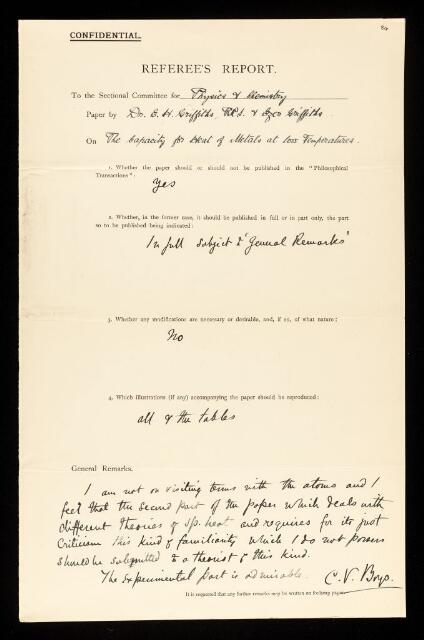 84
CONFIDENTIAL.
REFEREE'S REPORT.
To the Sectional Committee for Physics & Chemistry
Paper by Dr. E. H. Griffiths, F.R.S. & Ezer Griffiths
On The Capacity for Heat of Metals at low Temperatures.
1. Whether the paper should or should not be published in the "Philosophical
Transactions":
Yes
2. Whether, in the former case, it should be published in full or in part only, the part
so to be published being indicated:
In full subject to "General Remarks"
3. Whether any modifications are necessary or desirable, and, if so, of what nature:
No
4. Which illustrations (if any) accompanying the paper should be reproduced:
all & the tables
General Remarks.
I am not on visiting terms with the atoms and I
feel that the second part of the paper which deals with
different theories of sp. heat and requires for its just
Criticism this kind of familiarity which I do not possess
should be submitted to a theorist of this kind.
The experimental part is admirable. C. V. Boys.
It is requested that any further remarks may be written on foolscap paper.